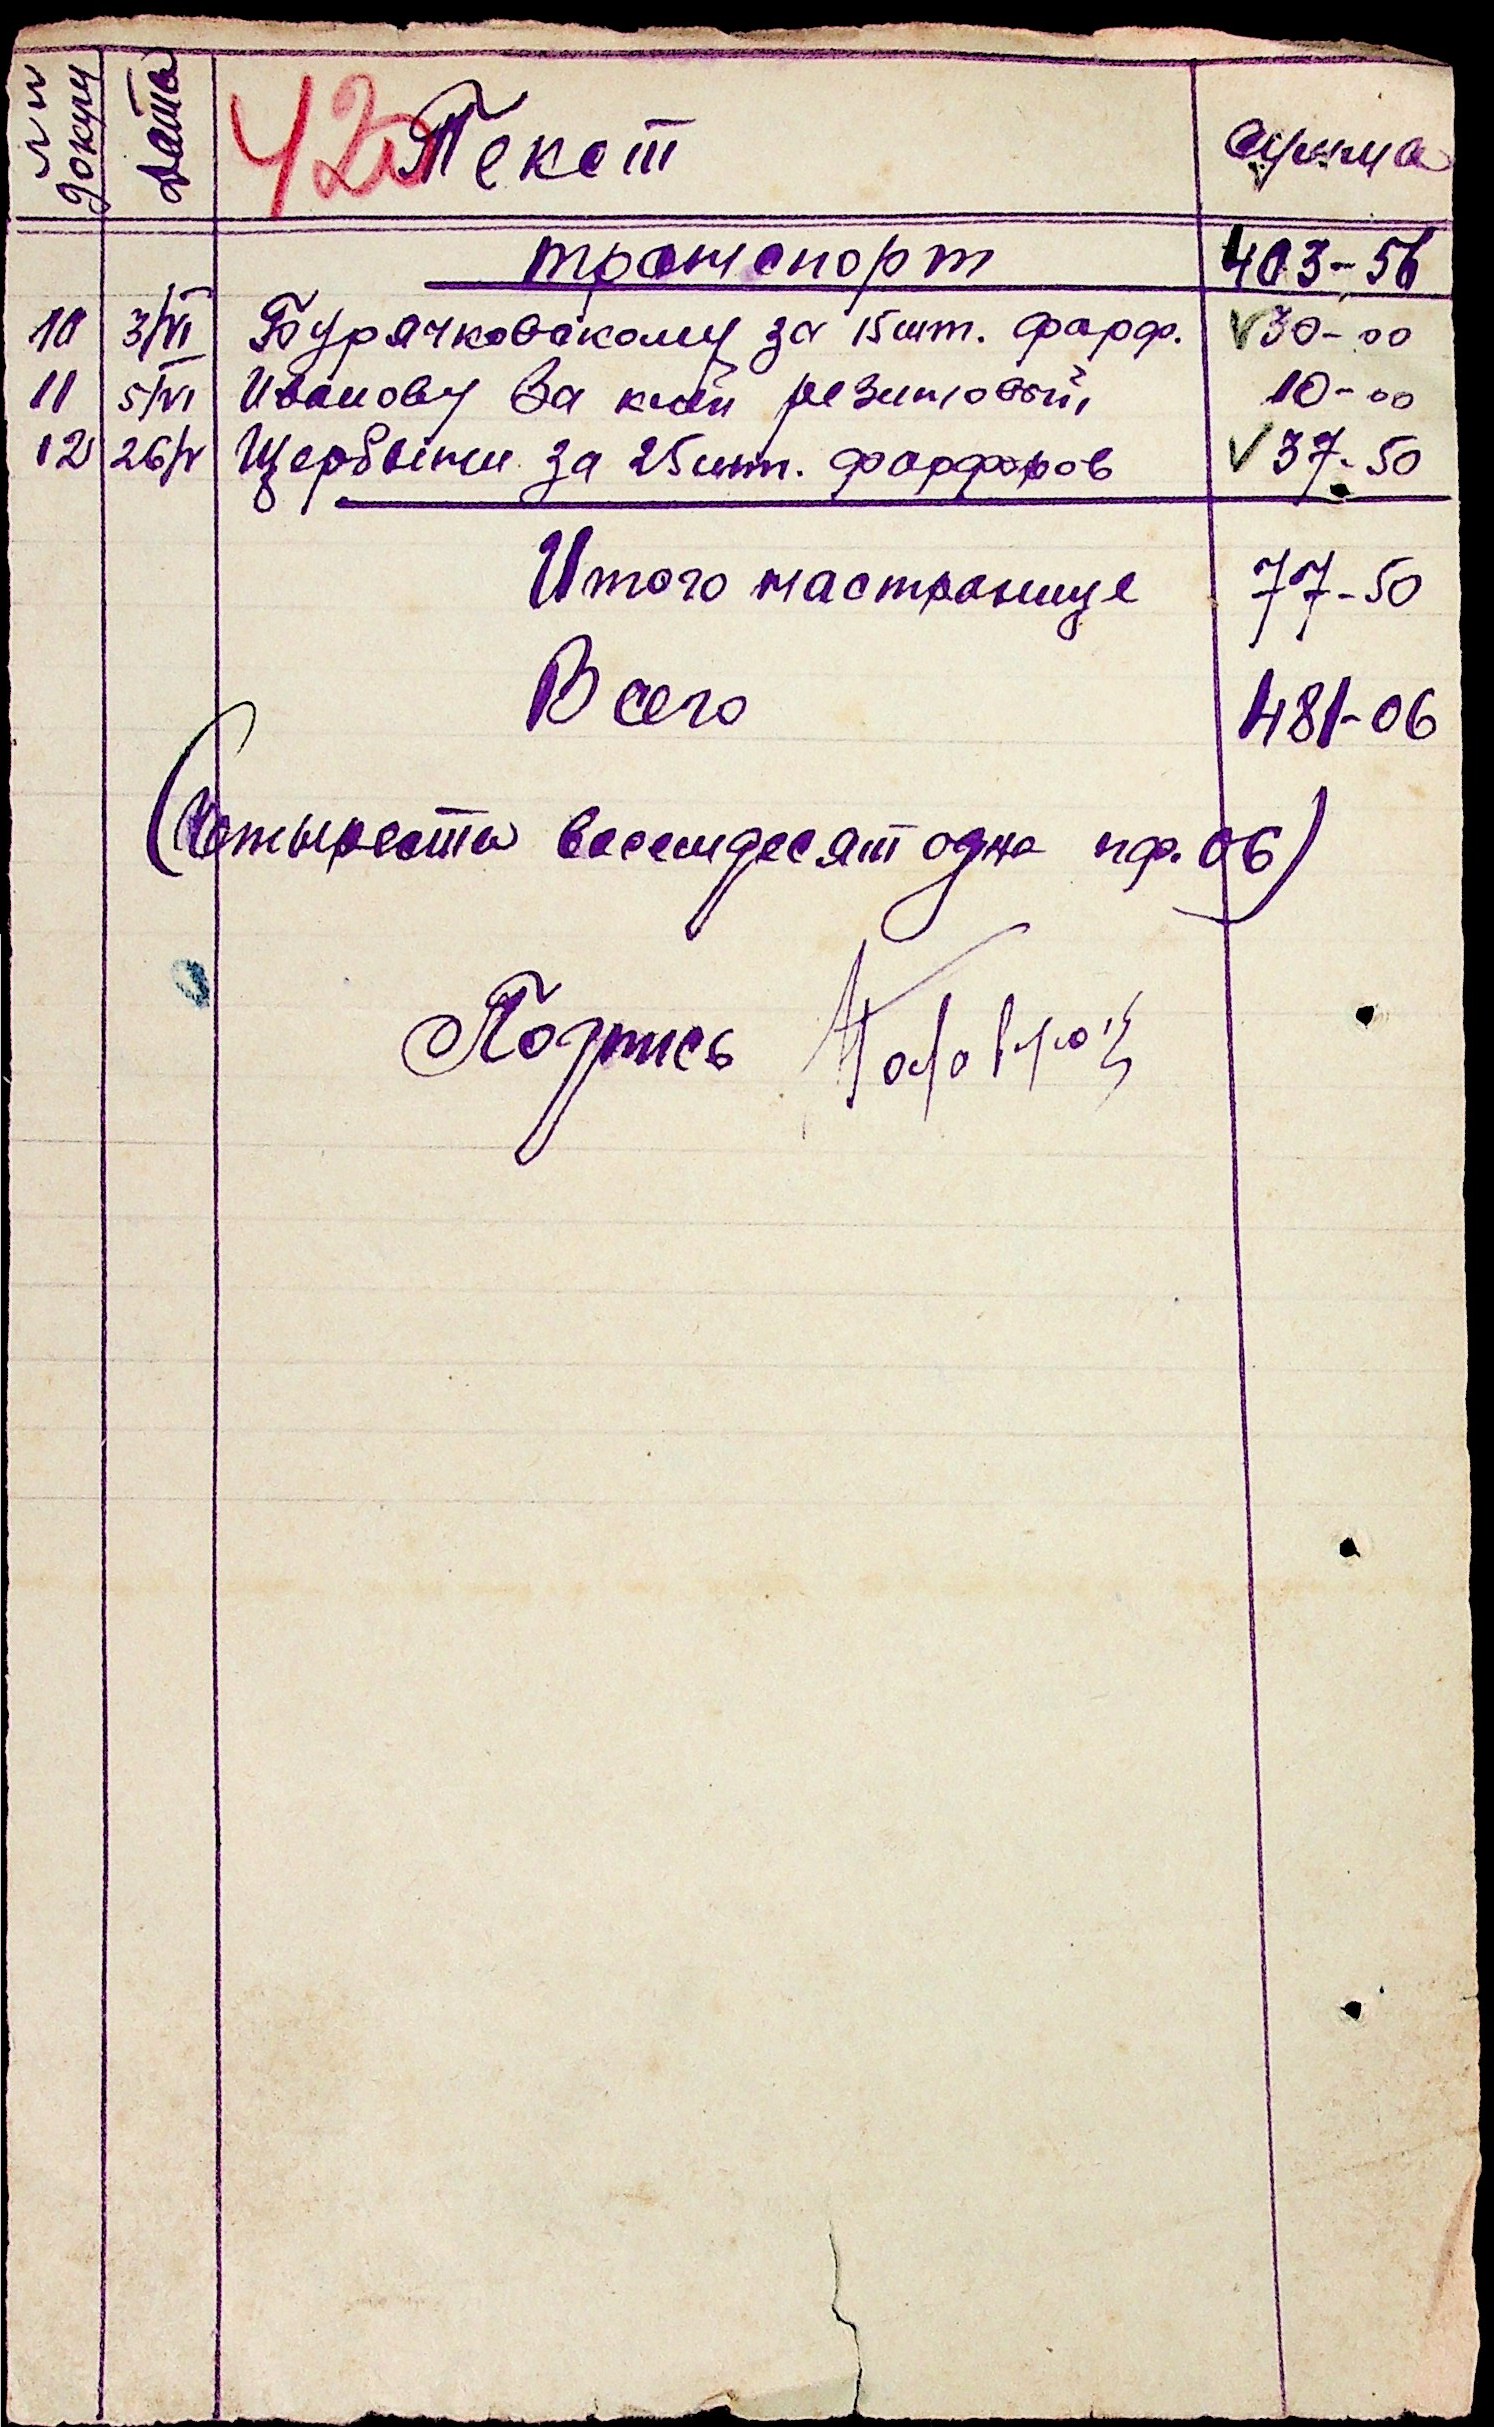 №№ докум Дата 42 Текст сумма
транспорт 403-56
10 3/VI Бурячковскому за 15 шт. фарф. √30-00
11 5/VI Иванову за клей резиновый 10-00
12 26/V Щербыни за 25 шт. фарфоров √37-50
Итого на странице 77-50
Всего 481-06
(Четыреста восемдесят одна пф. 06)
Подпись